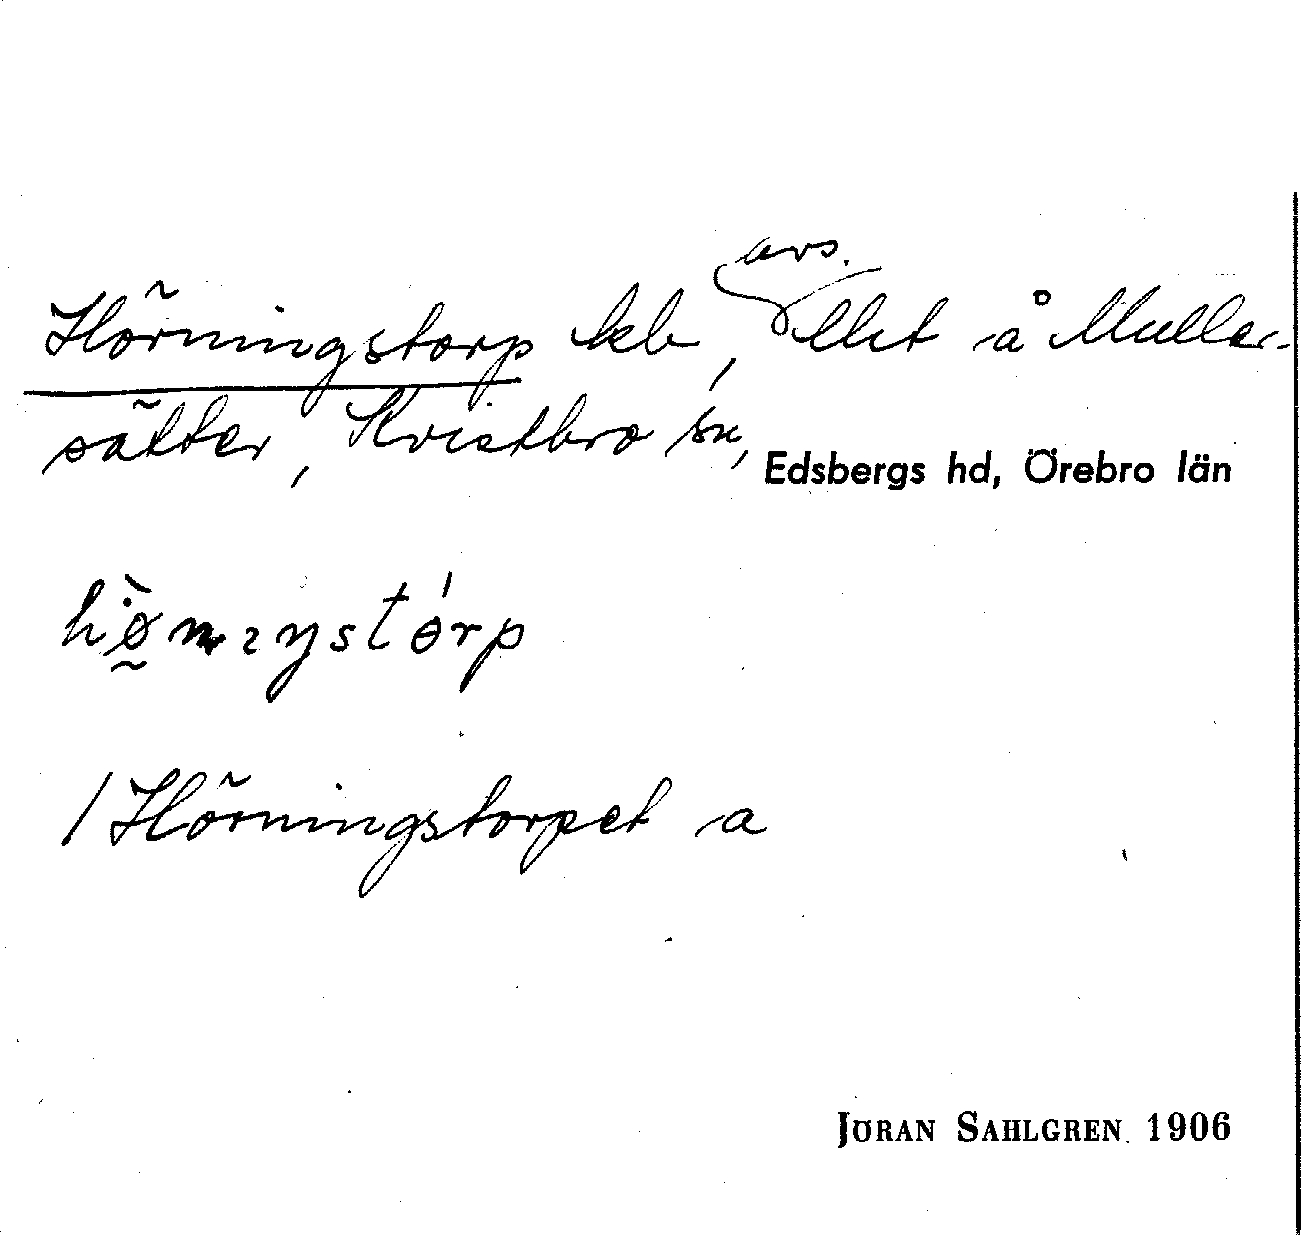 avs.
Hörningstorp lht, å Muller-
sätter, Kvistbro sn,
Edsbergs hd, Örebro län
/Hörningstorpet a
JÖRAN SAHLGREN 1906